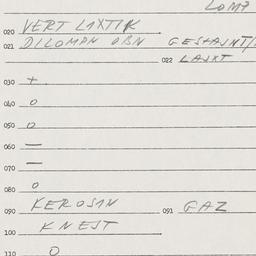 LOMP
020 VERT LIXTIK
021 DILOMPN OBN GESHAJNT/
022 LAJXT
030 +
040 o
050 o
060 —
070 —
080 o
090 KEROSIN 091 GAZ
100 KNEJT
110 O